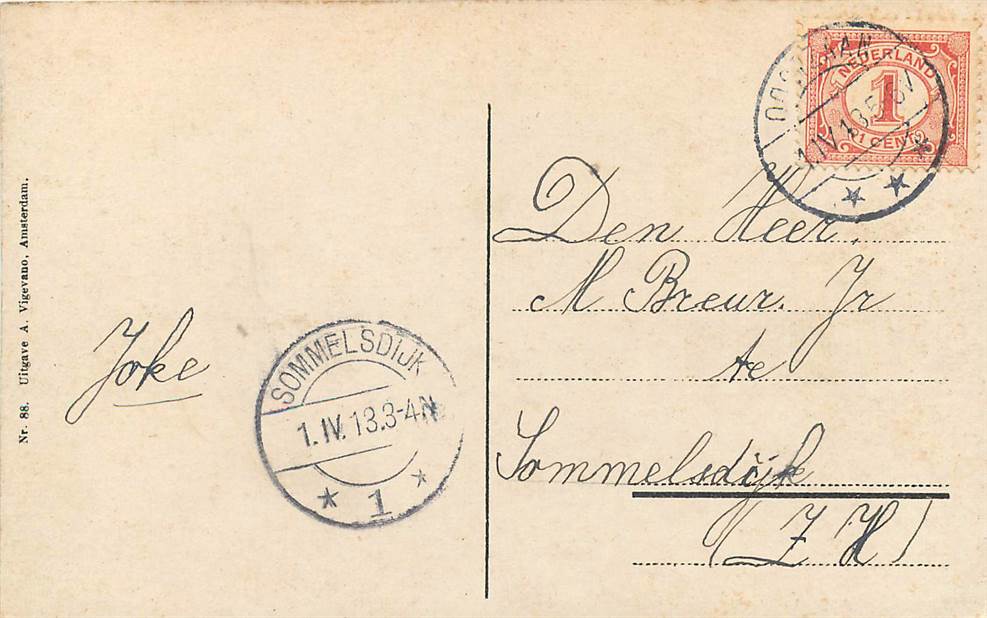 Nr. 88. Uitgave A. Vigevano, Amsterdam.
Joke
SOMMELSDIJK
1.IV.13.3-4N
1
NEDERLAND
1
1 CENT
1.IV.13
Den Heer,
M Breur. Jr
te
Sommelsdijk
(Z H)